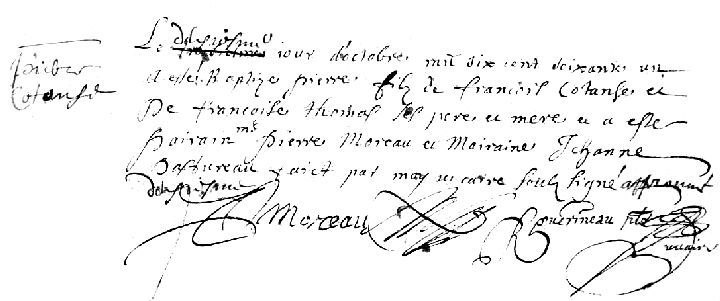 Pierre
Cotanse
Le dixiesme jour d'octobre mil six cent soixante un
a esté Baptizé pierre filz de francois Cotanse et
De francoise thomas ses pere et mere et a esté
parain mre Pierre Moreau et Maraine Jehanne
pastureau faict par moy vicaire soubz signé approuvé
dixiesme
Moreau
R Guerineau
vicaire